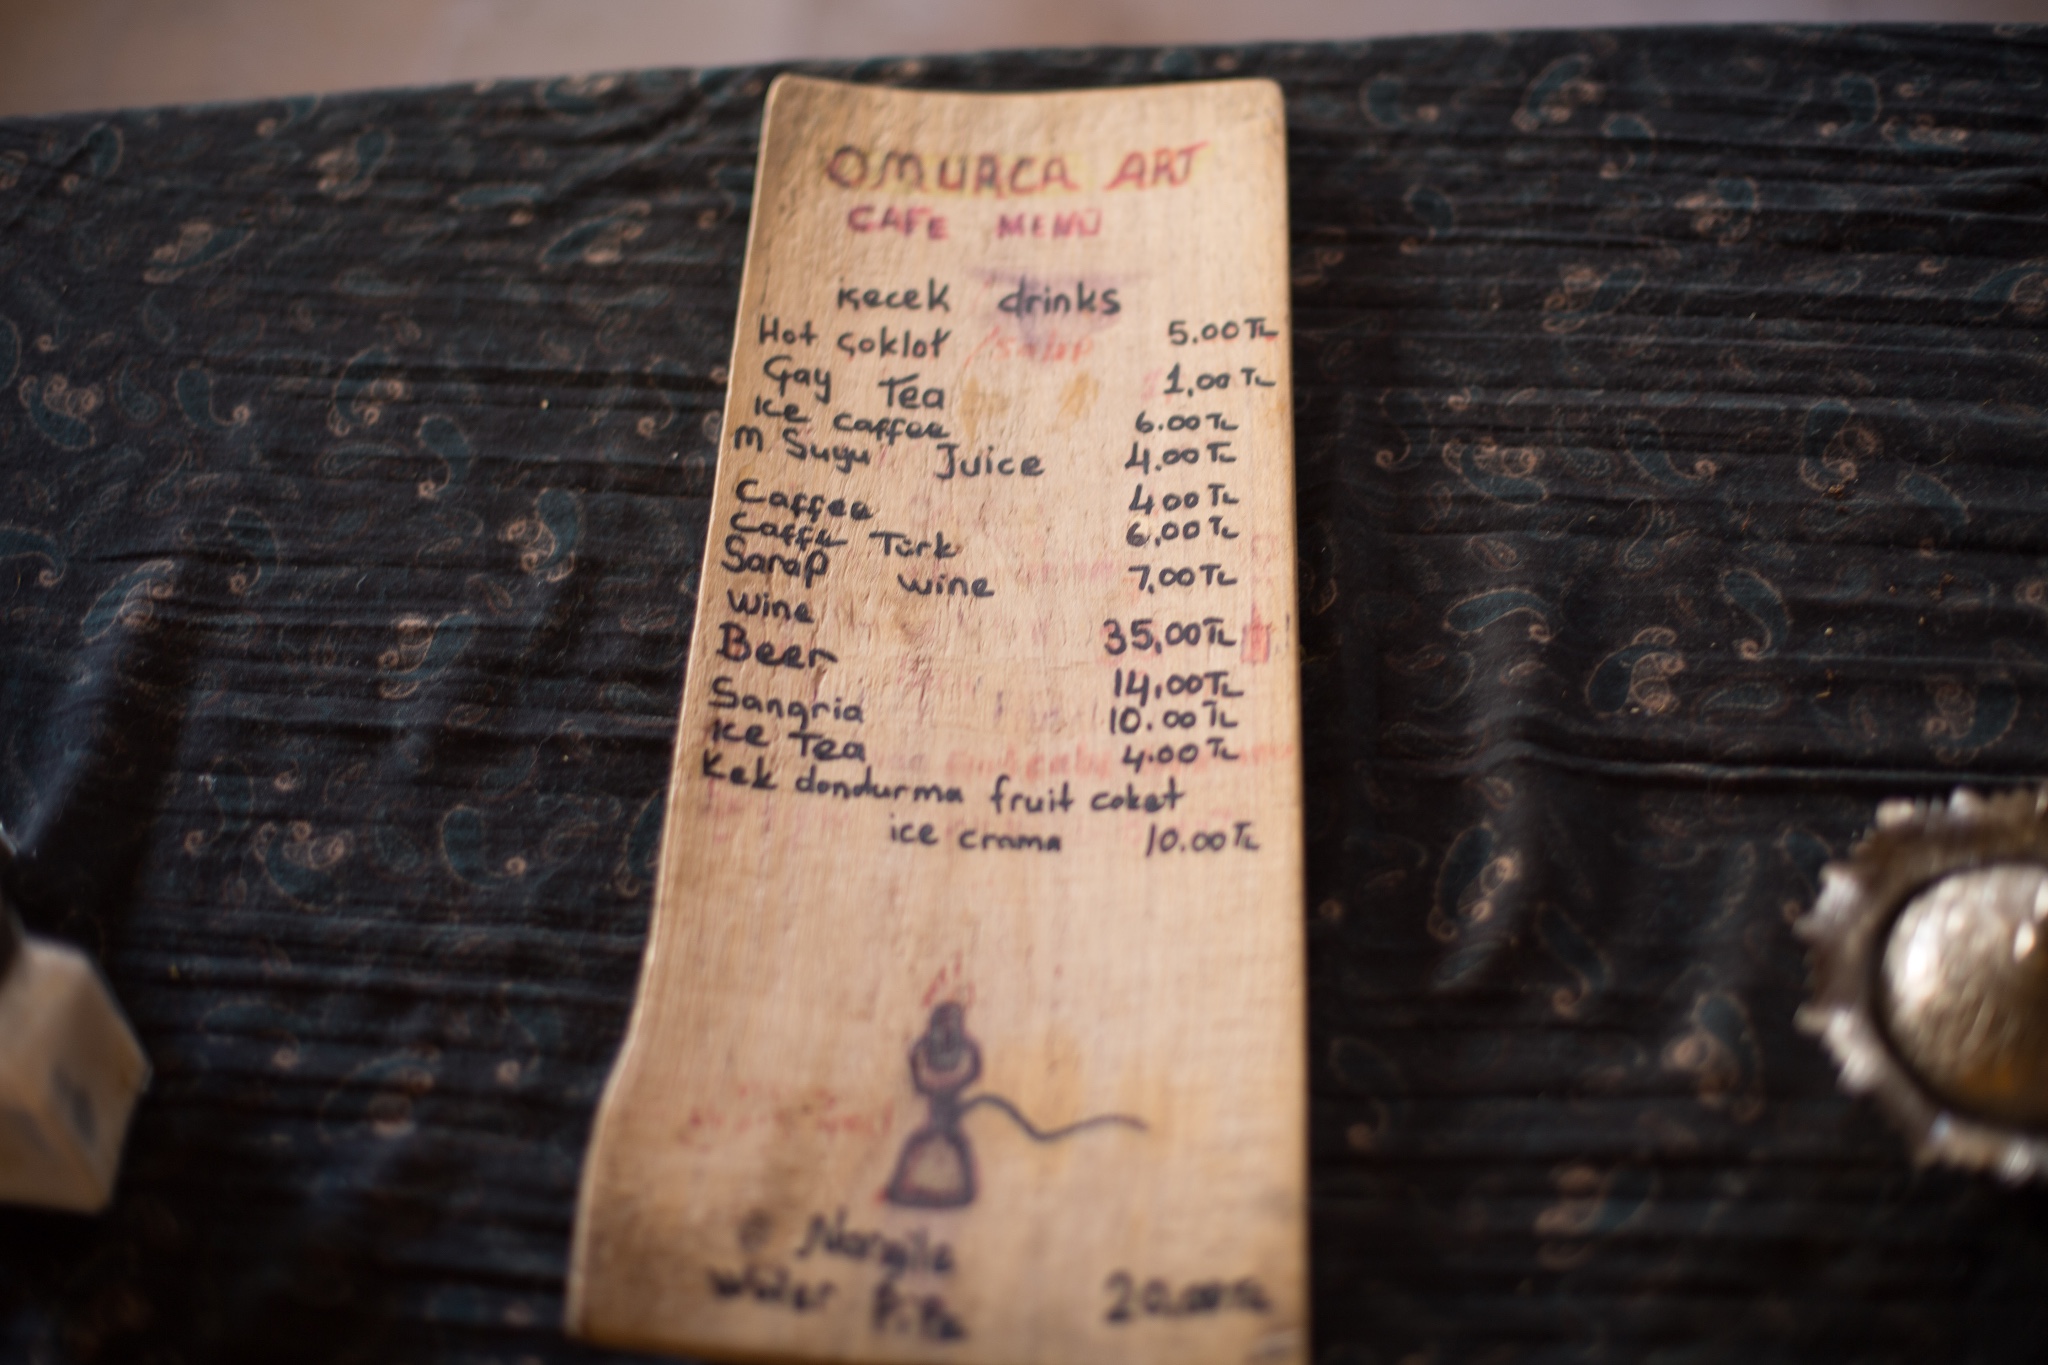 OMURCA ART
CAFE MENU
içecek drinks
Hot çoklot 5.00 TL
Çay Tea 1,00 TL
ice caffee 6.00 TL
M Suyu Juice 4,00 TL
Caffee 4,00 TL
Caffe Türk 6,00 TL
Sarap wine 7,00 TL
Wine 35,00 TL
Beer 14,00 TL
Sangria 10.00 TL
ice Tea 4.00 TL
Kek dondurma fruit coket
ice crama 10.00 TL
Nargile
Water PiPe 20,00 TL